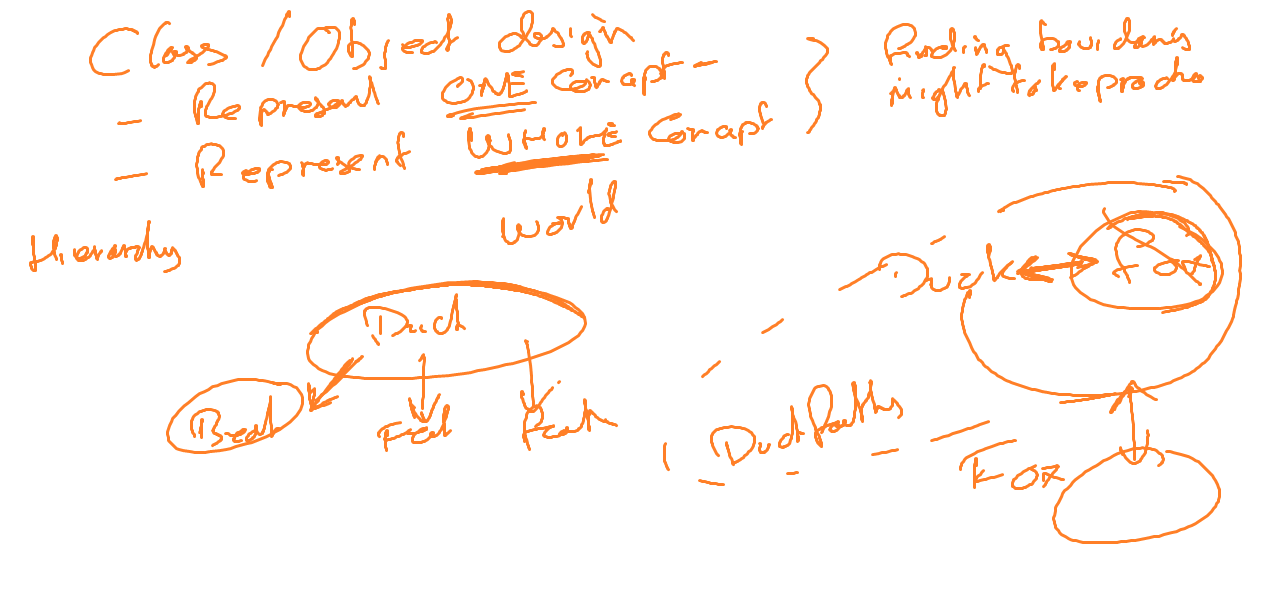 Class / Object design
- Represent ONE Concept -
- Represent WHOLE Concept
Finding boundaries
might take practice
World
Hierarchy
Duck
Beak Feet Feath
Duck Fox
Duck Paths
Fox